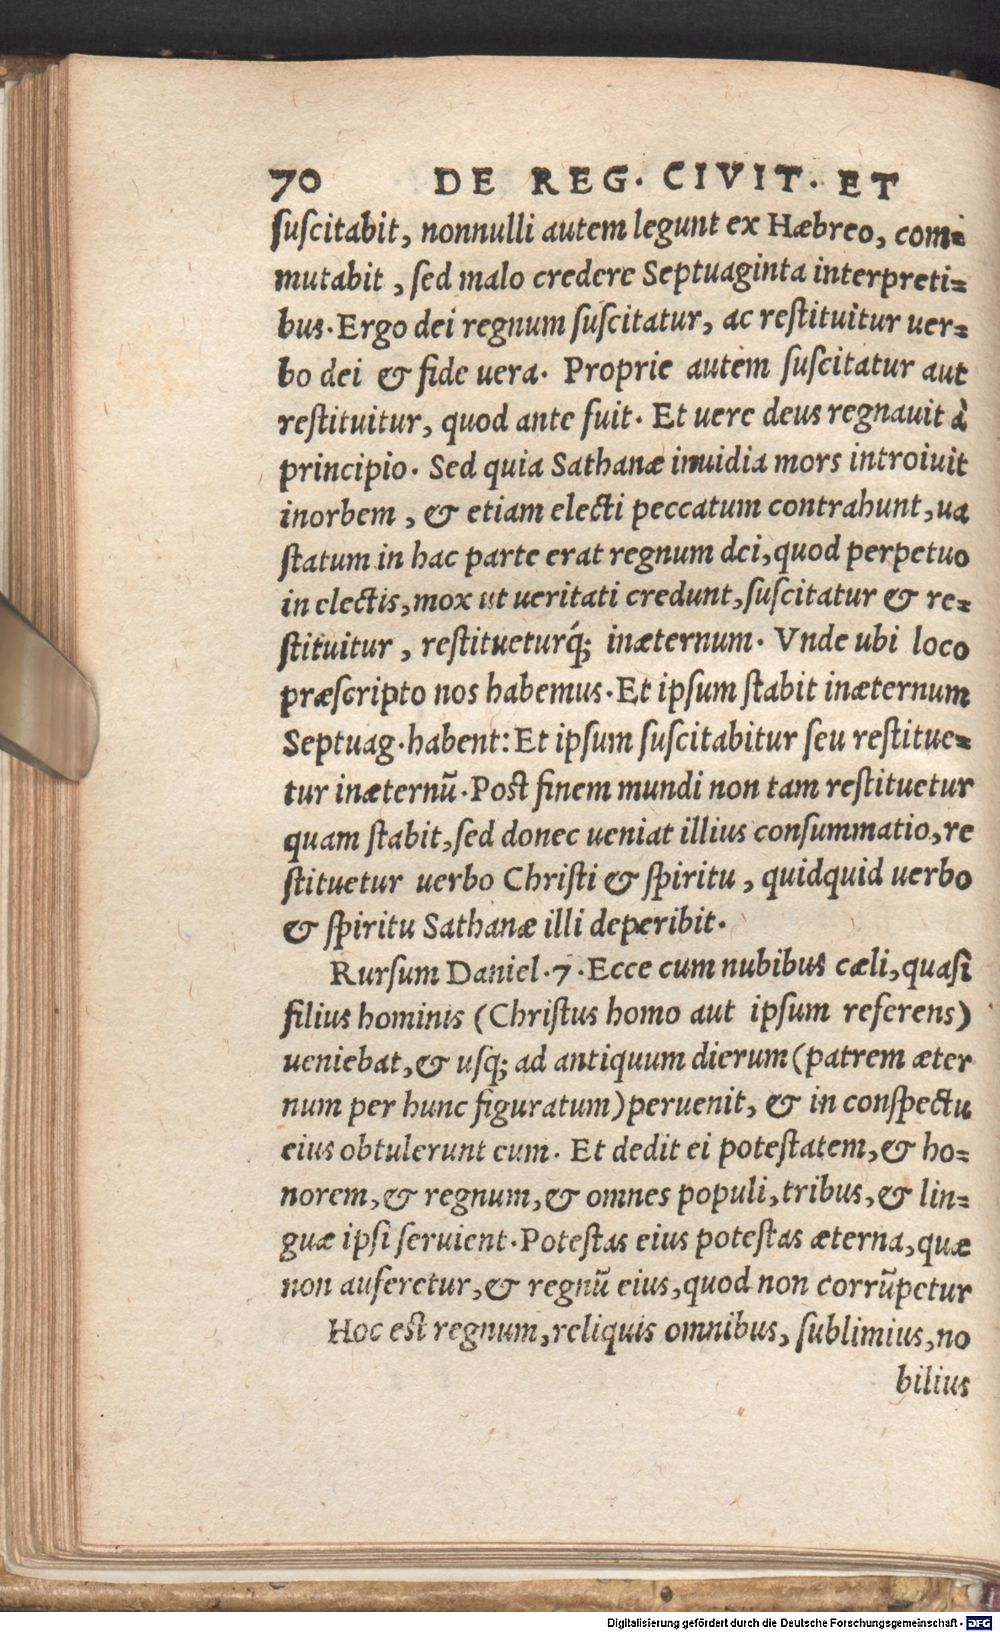 70 DE REG. CIVIT. ET
suscitabit, nonnulli autem legunt ex Hæbreo, com=
mutabit, sed malo credere Septuaginta interpreti=
bus. Ergo dei regnum suscitatur, ac restituitur uer=
bo dei & fide uera. Proprie autem suscitatur aut
restituitur, quod ante fuit. Et uere deus regnauit à
principio. Sed quia Sathanæ inuidia mors introiuit
inorbem, & etiam electi peccatum contrahunt, ua
statum in hac parte erat regnum dei, quod perpetuo
in electis, mox ut ueritati credunt, suscitatur & re=
stituitur, restitueturq́; inæternum. Vnde ubi loco
præscripto nos habemus. Et ipsum stabit inæternum
Septuag. habent: Et ipsum suscitabitur seu restitue=
tur inæternū. Post finem mundi non tam restituetur
quam stabit, sed donec ueniat illius consummatio, re
stituetur uerbo Christi & spiritu, quidquid uerbo
& spiritu Sathanæ illi deperibit.
Rursum Daniel. 7. Ecce cum nubibus cæli, quasi
filius hominis (Christus homo aut ipsum referens)
ueniebat, & usq; ad antiquum dierum (patrem æter
num per hunc figuratum) peruenit, & in conspectu
eius obtulerunt eum. Et dedit ei potestatem, & ho=
norem, & regnum, & omnes populi, tribus, & lin=
guæ ipsi seruient. Potestas eius potestas æterna, quæ
non auferetur, & regnū eius, quod non corrūpetur
Hoc est regnum, reliquis omnibus, sublimius, no
bilius
Digitalisierung gefördert durch die Deutsche Forschungsgemeinschaft - DFG